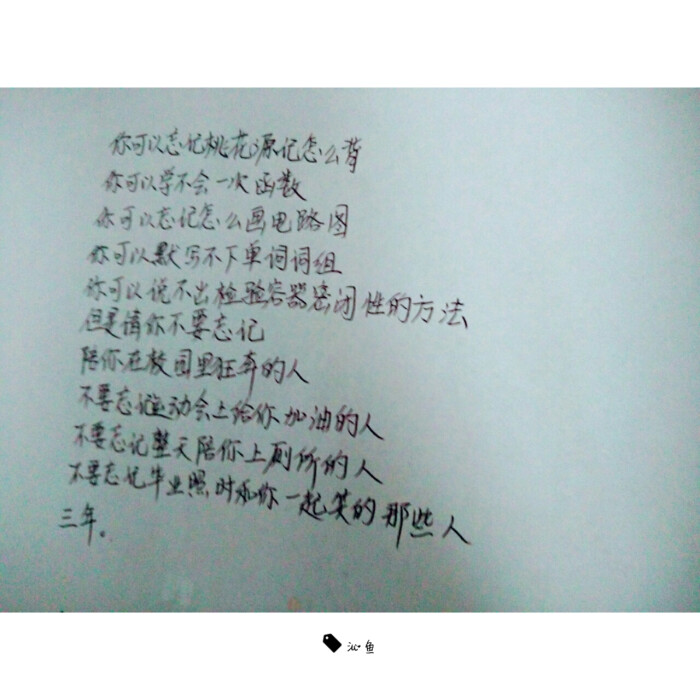 你可以忘记桃花源记怎么背
你可以学不会一次函数
你可以忘记怎么画电路图
你可以默写不下单词词组
你可以说不出检验容器密闭性的方法
但是请你不要忘记
陪你在校园里狂奔的人
不要忘记运动会上给你加油的人
不要忘记整天陪你上厕所的人
不要忘记毕业照时和你一起笑的那些人
三年。
沁鱼